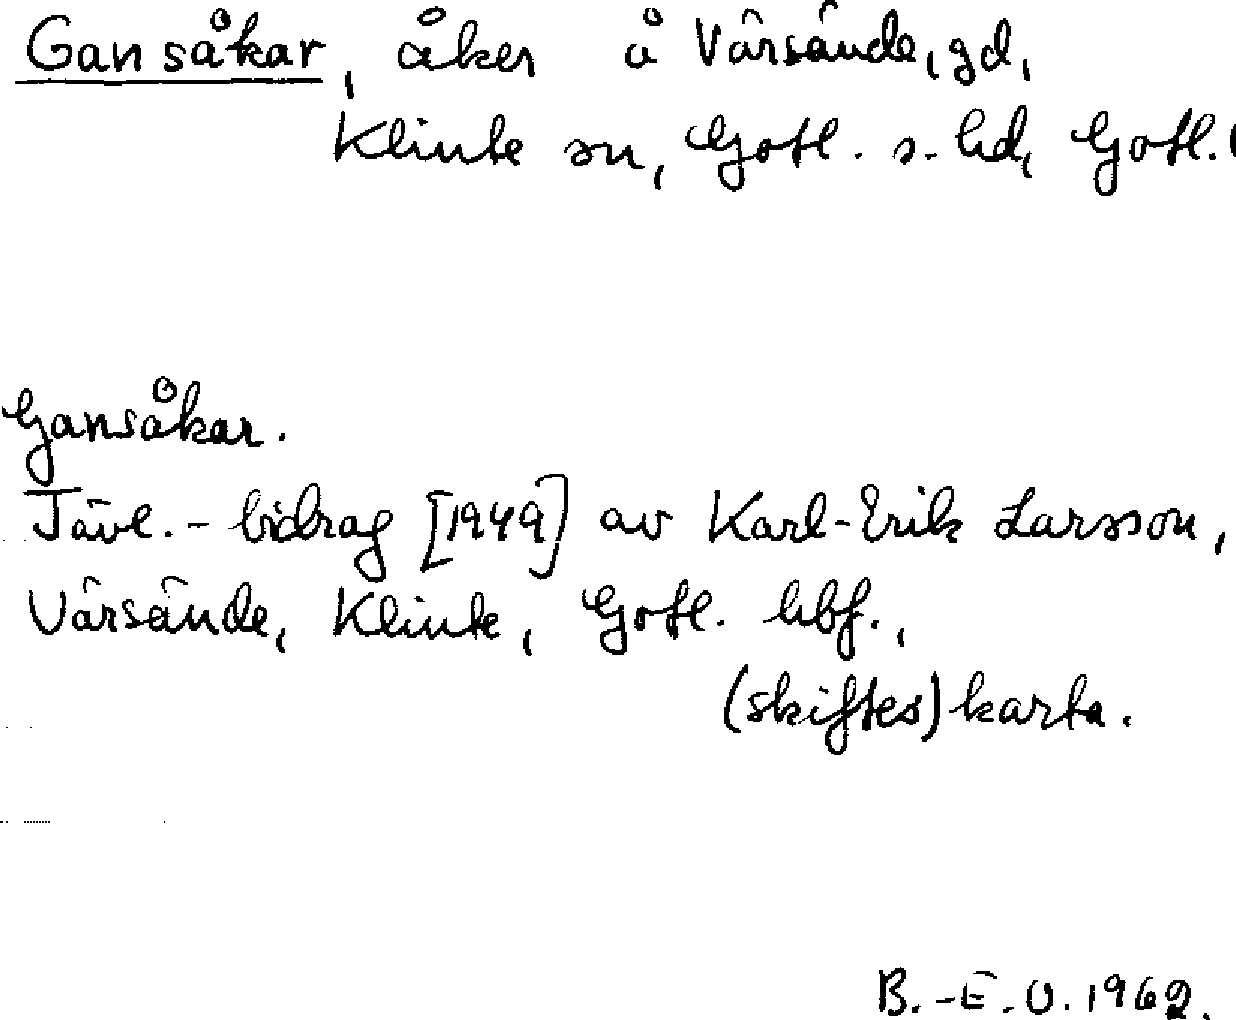 Gansåkar, åker å Värsände, gd,
Klinte sn, Gotl. s. hd, Gotl. l
Gansåkar.
Tävl.-bidrag [1949] av Karl-Erik Larsson,
Värsände, Klinte, Gotl. hbf.,
(skiftes)karta.
B.-E. O. 1962.